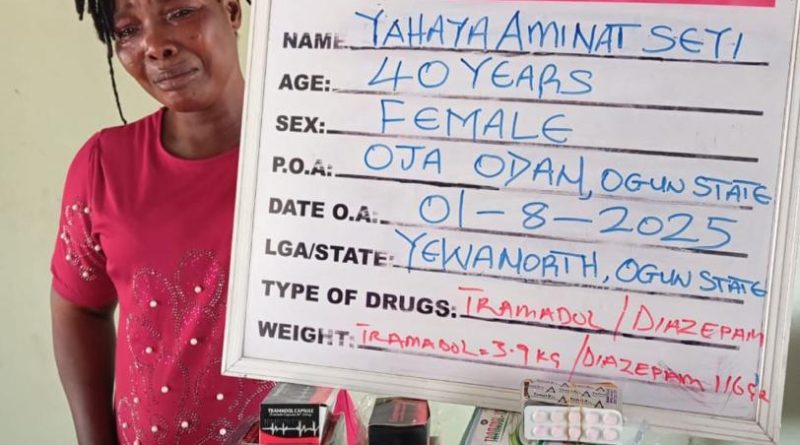 NAME: YAHAYA AMINAT SEYI
AGE: 40 YEARS
SEX: FEMALE
P.O.A: OJA ODAN, OGUN STATE
DATE O.A: 01-8-2025
LGA/STATE: YEWA NORTH, OGUN STATE
TYPE OF DRUGS: TRAMADOL / DIAZEPAM
WEIGHT: TRAMADOL = 3.9 KG / DIAZEPAM 116
TRAMADOL CAPSULE